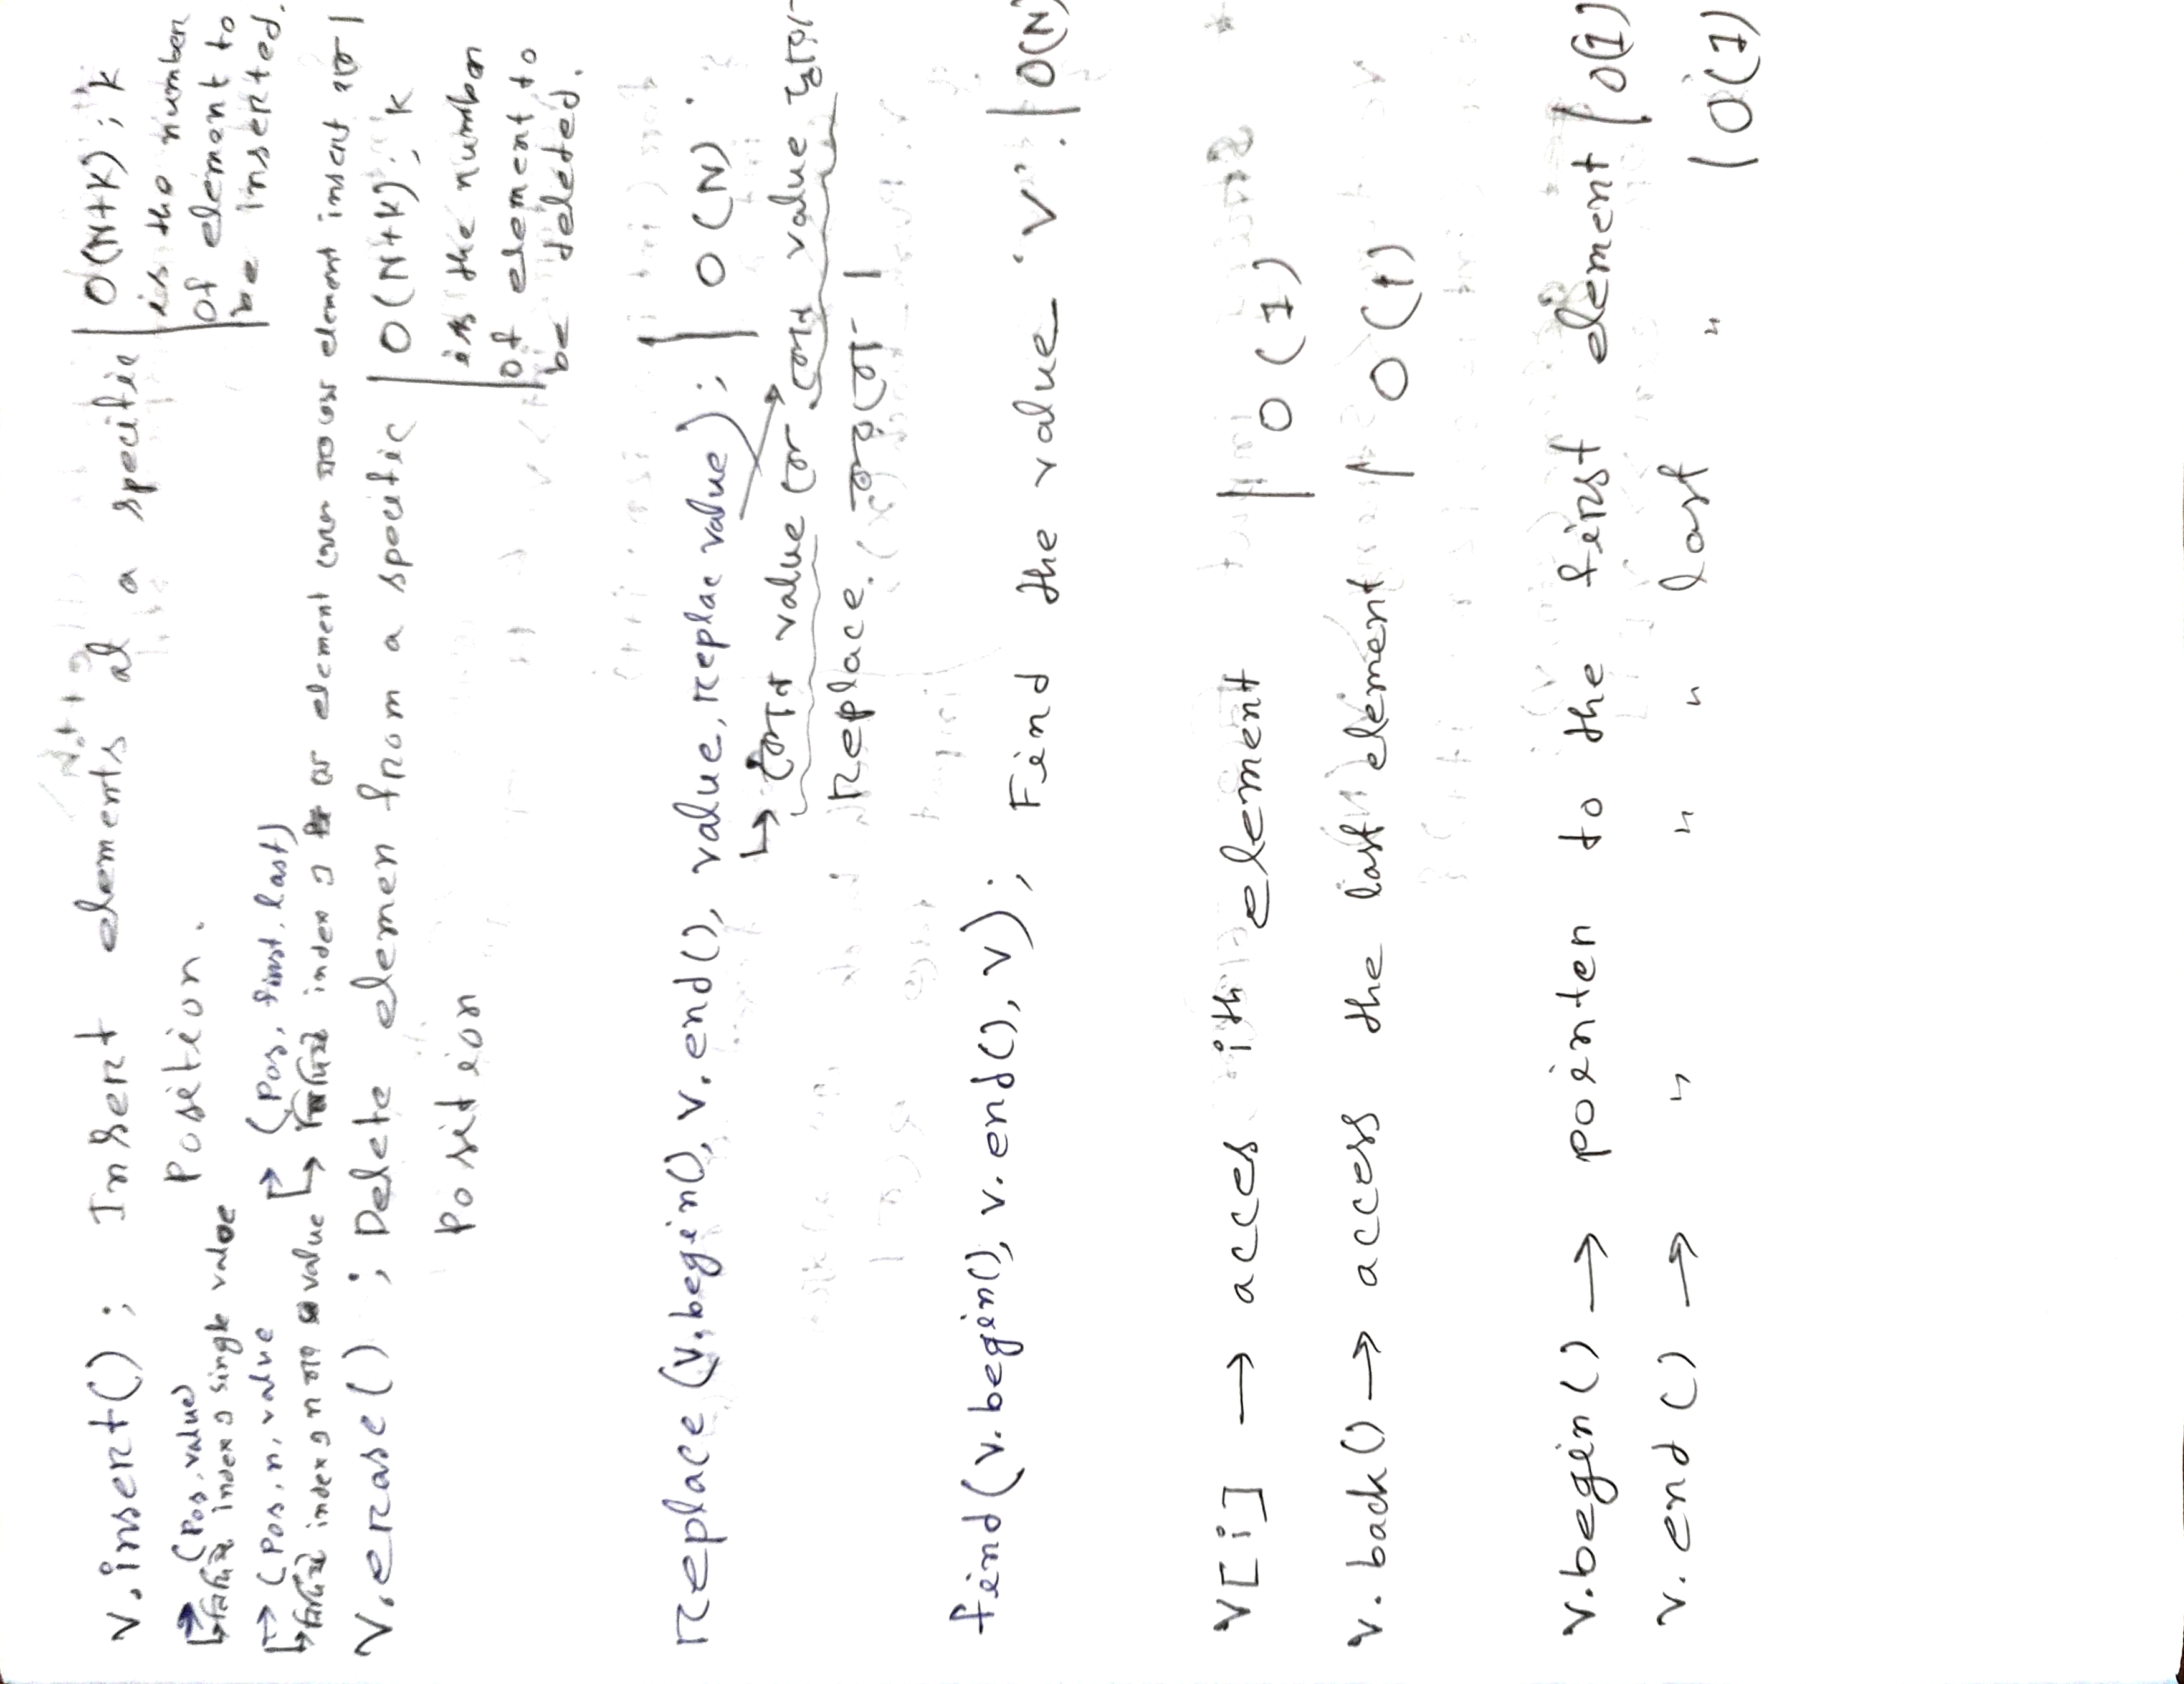 v.insert() ; Insert elements at a specific | O(N+K) ; k
Position. is the number
→ (Pos, value) of element to
↳ নির্দিষ্ট index এ single value be inserted.
→ (Pos, n, value → (Pos, first, last)
↳ নির্দিষ্ট index এ n value ↳ নির্দিষ্ট index এ element element insert
v.erase() ; Delete elemen from a specific | O(N+K) ; k
Position is the number
of element to
be deleted.
replace (v.begin(), v.end(), value, replac value) ; | O(N)
↳ কোন value কে কোন value দ্বারা
Replace করবো ।
find (v.begin(), v.end(), v) ; Find the value 'V'. | O(N)
V[i] → acces ith element | O(1)
v.back() → access the last element | O(1)
v.begin() → pointer to the first element | O(1)
v.end() → " " " last " | O(1)